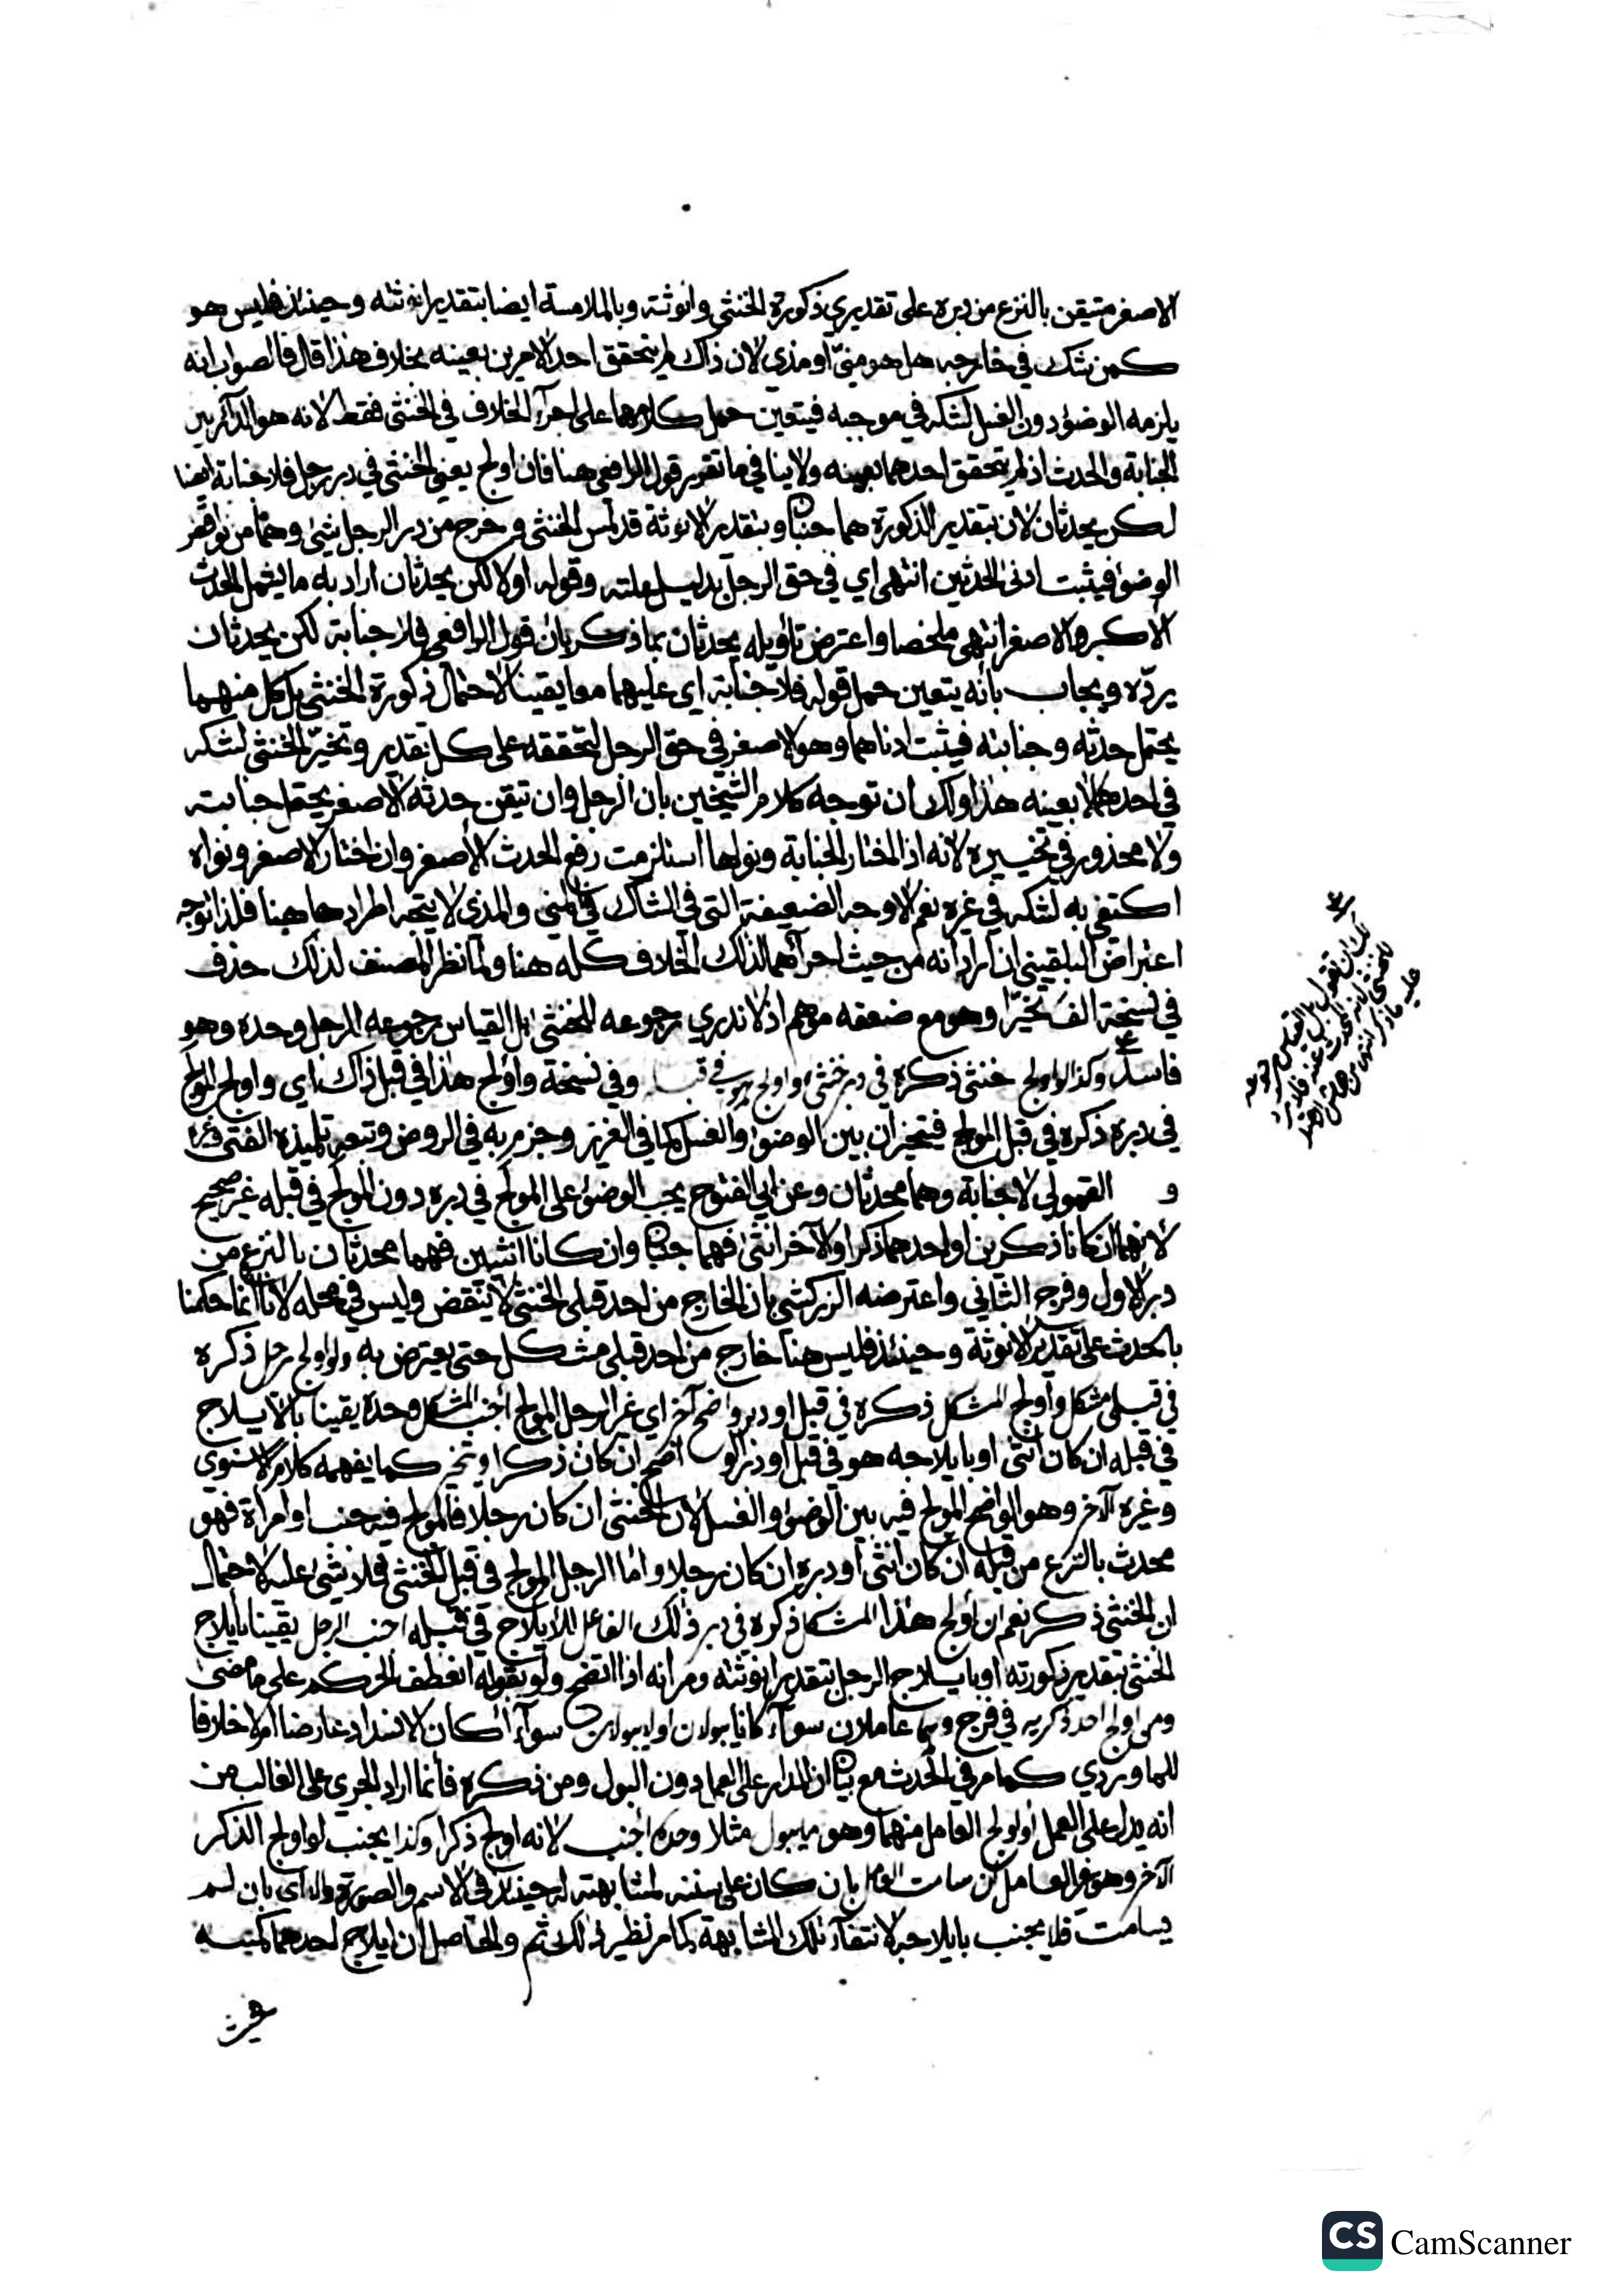 الاصغر متيقن بالنزع من دبره على تقديري ذكورة الخنثى وانوثته وبالملامسة ايضا بتقدير انوثته وحينئذ فليس هو
كمن شك في خارجه هل هو منيّ او مذي لان ذاك لم يتحقق احد الامرين بعينه بخلاف هذا قال فالصواب انه
يلزمه الوضوء دون الغسل لشكه في موجبه فيتعين حمل كلامهما على اجرآء الخلاف في الخنثى فقط لانه هو الدآئر بين
الجنابة والحدث اذ لم يتحقق احدهما بعينه ولا ينافي ما تقرر قول الرافعي هنا فان اولج يعني الخنثى في دبر رجل فلا جنابة ايضا
لكن يحدثان لان بتقدير الذكورة هما جنبان وبتقدير الانوثة قد لمس الخنثى وخرج من دبر الرجل شيئ وهما من نواقض
الوضوء فيثبت ادنى الحدثين انتهى اي في حق الرجل بدليل علته وقوله اولا لكن يحدثان اراد به ما يشمل الحدث
الاكبر والاصغر انتهى ملخصا واعترض تأويله يحدثان بما ذكر بان قول الرافعي فلا جنابة لكن يحدثان
يردّه ويجاب بأنه يتعين حمل قوله فلا جنابة اي عليهما معا يقينا لاحتمال ذكورة الخنثى بل كل منهما
يحتمل حدثه وجنابته فيثبت ادناهما وهو الاصغر في حق الرجل لتحققه على كل تقدير وتخيّر الخنثى لشكه
في احدهما لا بعينه هذا ولك ان توجه كلام الشيخين بان الرجل وان تيقن حدثه الاصغر يحتمل جنابته
ولا محذور في تخييره لانه اذا اختار الجنابة ونواها استلزمت رفع الحدث الأصغر وان اختار الاصغر ونواه
اكتفي به لشكه في غيره نعم الاوجه الضعيفة التي في الشاك في المني والمذي لا يتجه اطرادها هنا فلذا توجه
اعتراض البلقيني ان اراد انه من حيث اجرآئهما لذلك الخلاف كله هنا ولما نظر المصنف لذلك حذف
في نسخة الف تخيّرا وهو مع ضعفه موهم اذ لا ندري رجوعه للخنثى بل القياس رجوعه للرجل وحده وهو
فاسد وكذا لو اولج خنثى ذكره في دبر خنثى واولج هو في قبله وفي نسخة واولج هذا في قبل ذاك اي واولج المولج
في دبره ذكره في قبل المولج فيتخيران بين الوضوء والغسل كما في العزيز وجزم به في الروض وتبعه تلميذه الفتى
و القمولي لا جنابة وهما محدثان وعن ابي الفتوح يجب الوضوء على المولج في دبره دون المولج في قبله غير صحيح
لأنهما ان كانا ذكرين او احدهما ذكرا والآخر انثى فهما جنبان وان كانا انثيين فهما محدثان بالنزع من
دبر الاول وفرج الثاني واعترضه الزركشي بان الخارج من احد قبلي الخنثى لا ينقض وليس في محله لانا انما حكمنا
بالحدث على تقدير الانوثة وحينئذ فليس هنا خارج من احد قبلي مشكل حتى يعترض به ولو اولج رجل ذكره
في قبل مشكل واولج المشكل ذكره في قبل او دبر واضح آخر اي غير الرجل المولج اجنب المشكل وحده يقينا بالايلاج
في قبله ان كان انثى او بايلاجه هو في قبل او دبر الواضح ان كان ذكرا ويتخير كما يفهمه كلام الاسنوي
وغيره الآخر وهو الواضح المولج فيه بين الوضوء والغسل لان الخنثى ان كان رجلا فالمولج فيه جنب او امرأة فهو
محدث بالنزع من قبله ان كان انثى او دبره ان كان رجلا واما الرجل المولج في قبل الخنثى فلا شيئ عليه لاحتمال
ان الخنثى ذكر نعم ان اولج هذا المشكل ذكره في دبر ذلك الفاعل للايلاج في قبله اجنب الرجل يقينا بايلاج
الخنثى بتقدير ذكورته او بايلاج الرجل بتقدير انوثته ومر انه اذا اتضح ولو بقوله انعطف الحكم على ما مضى
ومن اولج احد ذكريه في فرج وهما عاملان سوآء كانا يبولان او لا يبولان سوآء أكان الانسداد عارضا ام لا خلافا
للماوردي كما مر في الحدث مع بيان ان المدار على العمل دون البول ومن ذكره فانما اراد الجري على الغالب من
انه يدل على العمل او اولج العامل منهما وهو ما يبول مثلا وحده اجنب لانه اولج ذكرا وكذا يجنب لو اولج الذكر
الآخر وهو غير العامل ان سامت العامل بان كان على سننه لمشابهته له حينئذ في الاسم والصورة والا اي بان لم
يسامت فلا يجنب بايلاجه لانتفآء تلك المشابهة كما مر نظير ذلك ثم والحاصل ان ايلاج احدهما كمسه
لك ان تقول بل القياس رجوعه
للخنثى لانه المحدث عنه فلا يرد
عليه ما ذكر انتهى من هامش
CS CamScanner